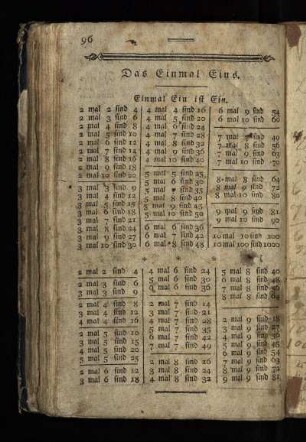 96
Das Einmal Eins.
Einmal Ein ist Ein.
2 mal 2 sind 4
2 mal 3 sind 6
2 mal 4 sind 8
2 mal 5 sind 10
2 mal 6 sind 12
2 mal 7 sind 14
2 mal 8 sind 16
2 mal 9 sind 18
2 mal 10 sind 20
3 mal 3 sind 9
3 mal 4 sind 12
3 mal 5 sind 15
3 mal 6 sind 18
3 mal 7 sind 21
3 mal 8 sind 24
3 mal 9 sind 27
3 mal 10 sind 30
4 mal 4 sind 16
4 mal 5 sind 20
4 mal 6 sind 24
4 mal 7 sind 28
4 mal 8 sind 32
4 mal 9 sind 36
4 mal 10 sind 40
5 mal 5 sind 25
5 mal 6 sind 30
5 mal 7 sind 35
5 mal 8 sind 40
5 mal 9 sind 45
5 mal 10 sind 50
6 mal 6 sind 36
6 mal 7 sind 42
6 mal 8 sind 48
6 mal 9 sind 54
6 mal 10 sind 60
7 mal 7 sind 49
7 mal 8 sind 56
7 mal 9 sind 63
7 mal 10 sind 70
8 mal 8 sind 64
8 mal 9 sind 72
8 mal 10 sind 80
9 mal 9 sind 81
9 mal 10 sind 90
10 mal 10 sind 100
10 mal 100 sind 1000
2 mal 2 sind 4
2 mal 3 sind 6
3 mal 3 sind 9
2 mal 4 sind 8
3 mal 4 sind 12
4 mal 4 sind 16
2 mal 5 sind 10
3 mal 5 sind 15
4 mal 5 sind 20
5 mal 5 sind 25
2 mal 6 sind 12
3 mal 6 sind 18
4 mal 6 sind 24
5 mal 6 sind 30
6 mal 6 sind 36
2 mal 7 sind 14
3 mal 7 sind 21
4 mal 7 sind 28
5 mal 7 sind 35
6 mal 7 sind 42
7 mal 7 sind 49
2 mal 8 sind 16
3 mal 8 sind 24
4 mal 8 sind 32
5 mal 8 sind 40
6 mal 8 sind 48
7 mal 8 sind 56
8 mal 8 sind 64
2 mal 9 sind 18
3 mal 9 sind 27
4 mal 9 sind 36
5 mal 9 sind 45
6 mal 9 sind 54
7 mal 9 sind 63
8 mal 9 sind 72
9 mal 9 sind 81